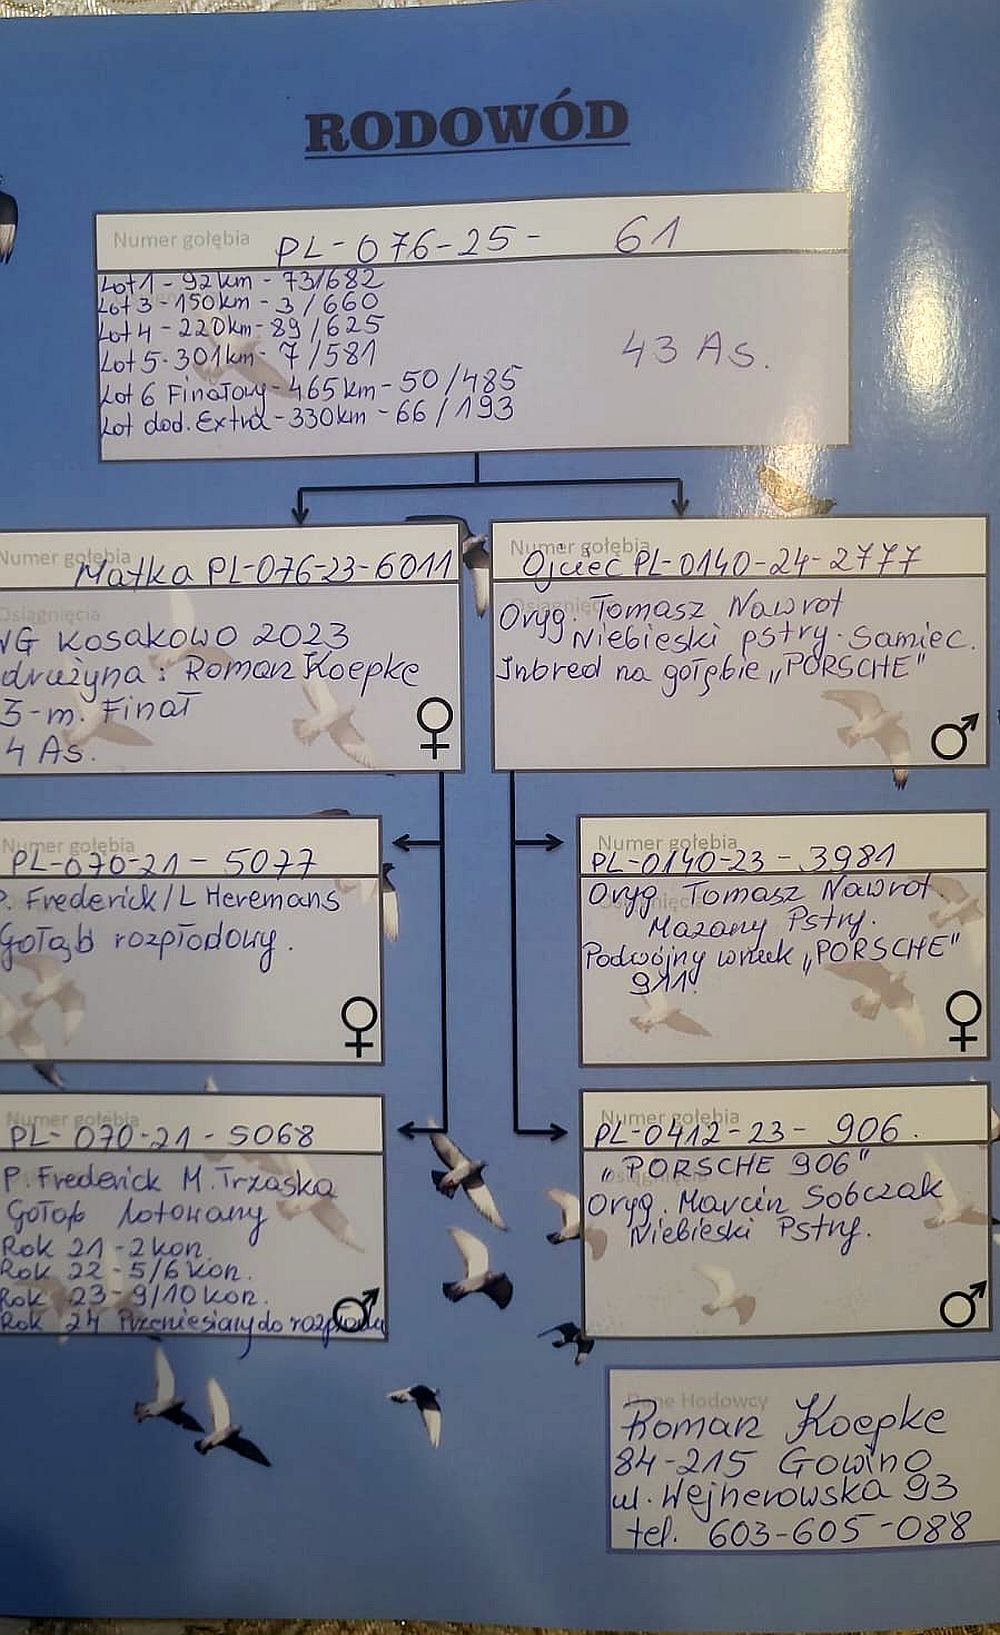 RODOWÓD
Numer gołębia PL-076-25- 61
Lot 1 - 92 km - 73/682
Lot 3 - 150 km - 3/660
Lot 4 - 220 km - 89/625
Lot 5 - 301 km - 7/581
43 As.
Lot 6 Finałowy - 465 km - 50/485
Lot dod. Extra - 330 km - 66/193
Numer gołębia
Matka PL-076-23-6011
Osiągnięcia
WG Kosakowo 2023
drużyna: Roman Koepke
3-m. Finał
4 As.
Numer gołębia
Ojciec PL-0140-24-2777
Oryg. Tomasz Nawrot
Niebieski pstry. Samiec.
Inbred na gołębie „PORSCHE"
Numer gołębia
PL-070-21-5077
P. Frederick/L Heremans
Gołąb rozpłodowy.
Numer gołębia
PL-0140-23-3981
Oryg. Tomasz Nawrot.
Mazany Pstry.
Podwójny wnuk „PORSCHE"
911.
Numer gołębia
PL-070-21-5068
P. Frederick M. Trzaska
Gołąb lotowany
Rok 21 - 2 kon.
Rok 22 - 5/6 kon.
Rok 23 - 9/10 kon.
Rok 24 Przeniesiany do rozpłodu
Numer gołębia
PL-0412-23- 906.
„PORSCHE 906"
Oryg. Marcin Sobczak
Niebieski Pstry.
Dane Hodowcy
Roman Koepke
84-215 Gowino
ul. Wejherowska 93
tel. 603-605-088